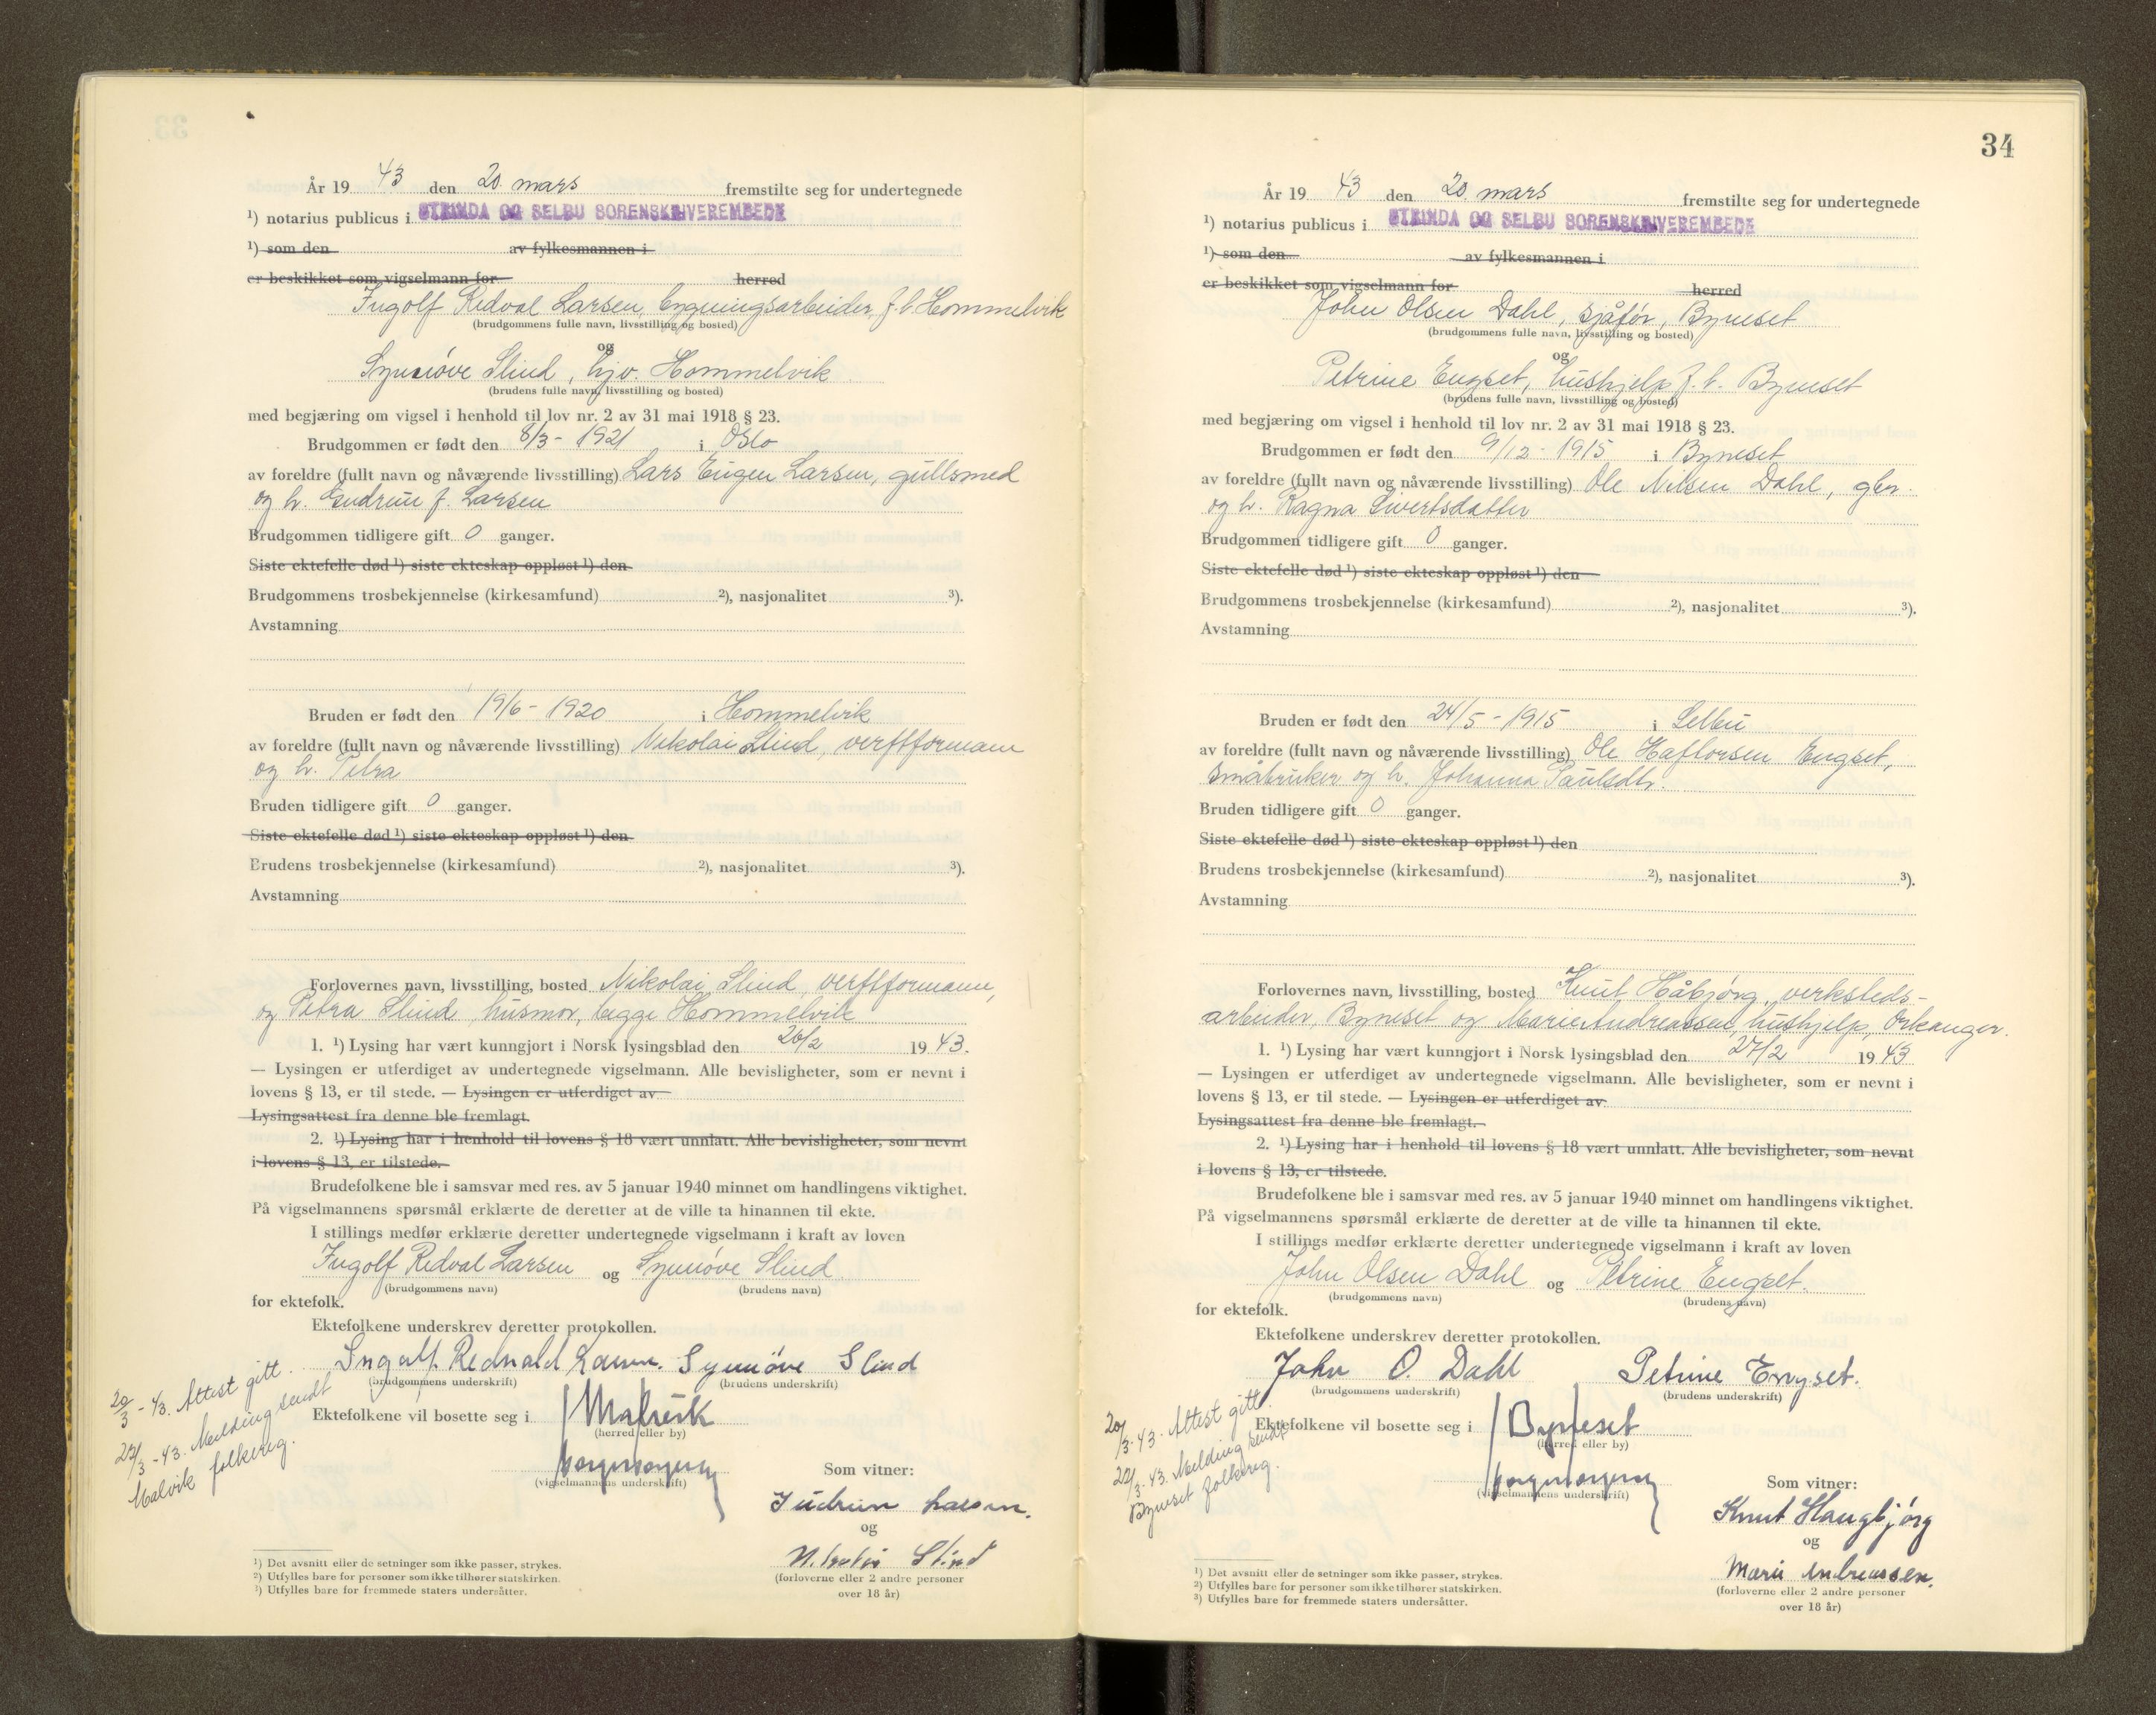 År 19 43 den 20. mars fremstilte seg for undertegnede
¹) notarius publicus i STRINDA OG SELBU SORENSKRIVEREMBEDE
¹) som den av fylkesmannen i
er beskikket som vigselmann for herred
Ingolf Redval Larsen, bygningsarbeider, f.b. Hommelvik
(brudgommens fulle navn, livsstilling og bosted)
og
Synnöve Slind, hjv. Hommelvik
(brudens fulle navn, livsstilling og bosted)
med begjæring om vigsel i henhold til lov nr. 2 av 31 mai 1918 § 23.
Brudgommen er født den 8/3 - 1921 i Oslo
av foreldre (fullt navn og nåværende livsstilling) Lars Eugen Larsen, gullsmed
og h. Gudrun f. Larsen
Brudgommen tidligere gift 0 ganger.
Siste ektefelle død ¹) siste ekteskap oppløst ¹) den
Brudgommens trosbekjennelse (kirkesamfund) ²), nasjonalitet ³).
Avstamning
Bruden er født den 19/6 - 1920 i Hommelvik
av foreldre (fullt navn og nåværende livsstilling) Nikolai Slind, verftformann
og h. Petra
Bruden tidligere gift 0 ganger.
Siste ektefelle død ¹) siste ekteskap oppløst ¹) den
Brudens trosbekjennelse (kirkesamfund) ²), nasjonalitet ³).
Avstamning
Forlovernes navn, livsstilling, bosted Nikolai Slind, verftformann,
og Petra Slind, husmor, begge Hommelvik
1. ¹) Lysing har vært kunngjort i Norsk lysingsblad den 26/2 19 43.
— Lysingen er utferdiget av undertegnede vigselmann. Alle bevisligheter, som er nevnt i
lovens § 13, er til stede. — Lysingen er utferdiget av
Lysingsattest fra denne ble fremlagt.
2. ¹) Lysing har i henhold til lovens § 18 vært unnlatt. Alle bevisligheter, som nevnt
i lovens § 13, er tilstede.
Brudefolkene ble i samsvar med res. av 5 januar 1940 minnet om handlingens viktighet.
På vigselmannens spørsmål erklærte de deretter at de ville ta hinannen til ekte.
I stillings medfør erklærte deretter undertegnede vigselmann i kraft av loven
Ingolf Redval Larsen og Synnöve Slind
(brudgommens navn) (brudens navn)
for ektefolk.
Ektefolkene underskrev deretter protokollen.
Ingolf Redvald Larsen. Synnöve Slind
(brudgommens underskrift) (brudens underskrift)
20/3 - 43. Attest gitt.
22/3 - 43. Melding sendt
Malvik folkereg.
Ektefolkene vil bosette seg i Malvik
(herred eller by)
(vigselmannens underskrift)
Som vitner:
Gudrun Larsen.
og
Nikolai Slind
(forloverne eller 2 andre personer
over 18 år)
¹) Det avsnitt eller de setninger som ikke passer, strykes.
²) Utfylles bare for personer som ikke tilhører statskirken.
³) Utfylles bare for fremmede staters undersåtter.
34
År 19 43 den 20. mars fremstilte seg for undertegnede
¹) notarius publicus i STRINDA OG SELBU SORENSKRIVEREMBEDE
¹) som den av fylkesmannen i
er beskikket som vigselmann for herred
John Olsen Dahl, sjåfør, Byneset
(brudgommens fulle navn, livsstilling og bosted)
og
Petrine Engset, hushjelp f.b. Byneset
(brudens fulle navn, livsstilling og bosted)
med begjæring om vigsel i henhold til lov nr. 2 av 31 mai 1918 § 23.
Brudgommen er født den 9/12 - 1915 i Byneset
av foreldre (fullt navn og nåværende livsstilling) Ole Nilsen Dahl, gbr.
og h. Ragna Sivertsdatter
Brudgommen tidligere gift 0 ganger.
Siste ektefelle død ¹) siste ekteskap oppløst ¹) den
Brudgommens trosbekjennelse (kirkesamfund) ²), nasjonalitet ³).
Avstamning
Bruden er født den 24/5 - 1915 i Selbu
av foreldre (fullt navn og nåværende livsstilling) Ole Haftorsen Engset,
småbruker og h. Johanna Paulsdtr.
Bruden tidligere gift 0 ganger.
Siste ektefelle død ¹) siste ekteskap oppløst ¹) den
Brudens trosbekjennelse (kirkesamfund) ²), nasjonalitet ³).
Avstamning
Forlovernes navn, livsstilling, bosted Knut Håbjørg, verksteds-
arbeider, Byneset og Marie Andreassen, hushjelp, Orkanger.
1. ¹) Lysing har vært kunngjort i Norsk lysingsblad den 27/2 19 43
— Lysingen er utferdiget av undertegnede vigselmann. Alle bevisligheter, som er nevnt i
lovens § 13, er til stede. — Lysingen er utferdiget av
Lysingsattest fra denne ble fremlagt.
2. ¹) Lysing har i henhold til lovens § 18 vært unnlatt. Alle bevisligheter, som nevnt
i lovens § 13, er tilstede.
Brudefolkene ble i samsvar med res. av 5 januar 1940 minnet om handlingens viktighet.
På vigselmannens spørsmål erklærte de deretter at de ville ta hinannen til ekte.
I stillings medfør erklærte deretter undertegnede vigselmann i kraft av loven
John Olsen Dahl og Petrine Engset.
(brudgommens navn) (brudens navn)
for ektefolk.
Ektefolkene underskrev deretter protokollen.
John O. Dahl Petrine Engset.
(brudgommens underskrift) (brudens underskrift)
20/3 - 43. Attest gitt.
22/3 - 43. Melding sendt
Byneset folkereg.
Ektefolkene vil bosette seg i Byneset
(herred eller by)
(vigselmannens underskrift)
Som vitner:
Knut Haugbjørg
og
Marie Andreassen.
(forloverne eller 2 andre personer
over 18 år)
¹) Det avsnitt eller de setninger som ikke passer, strykes.
²) Utfylles bare for personer som ikke tilhører statskirken.
³) Utfylles bare for fremmede staters undersåtter.